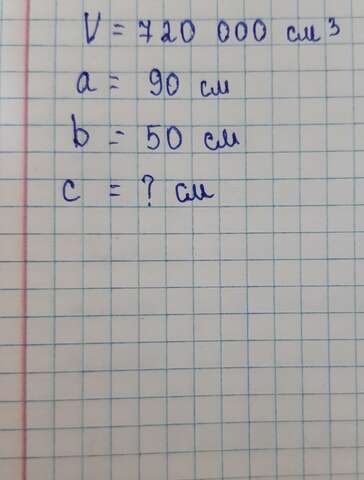 V = 720 000 см³
a = 90 см
b = 50 см
c = ? см